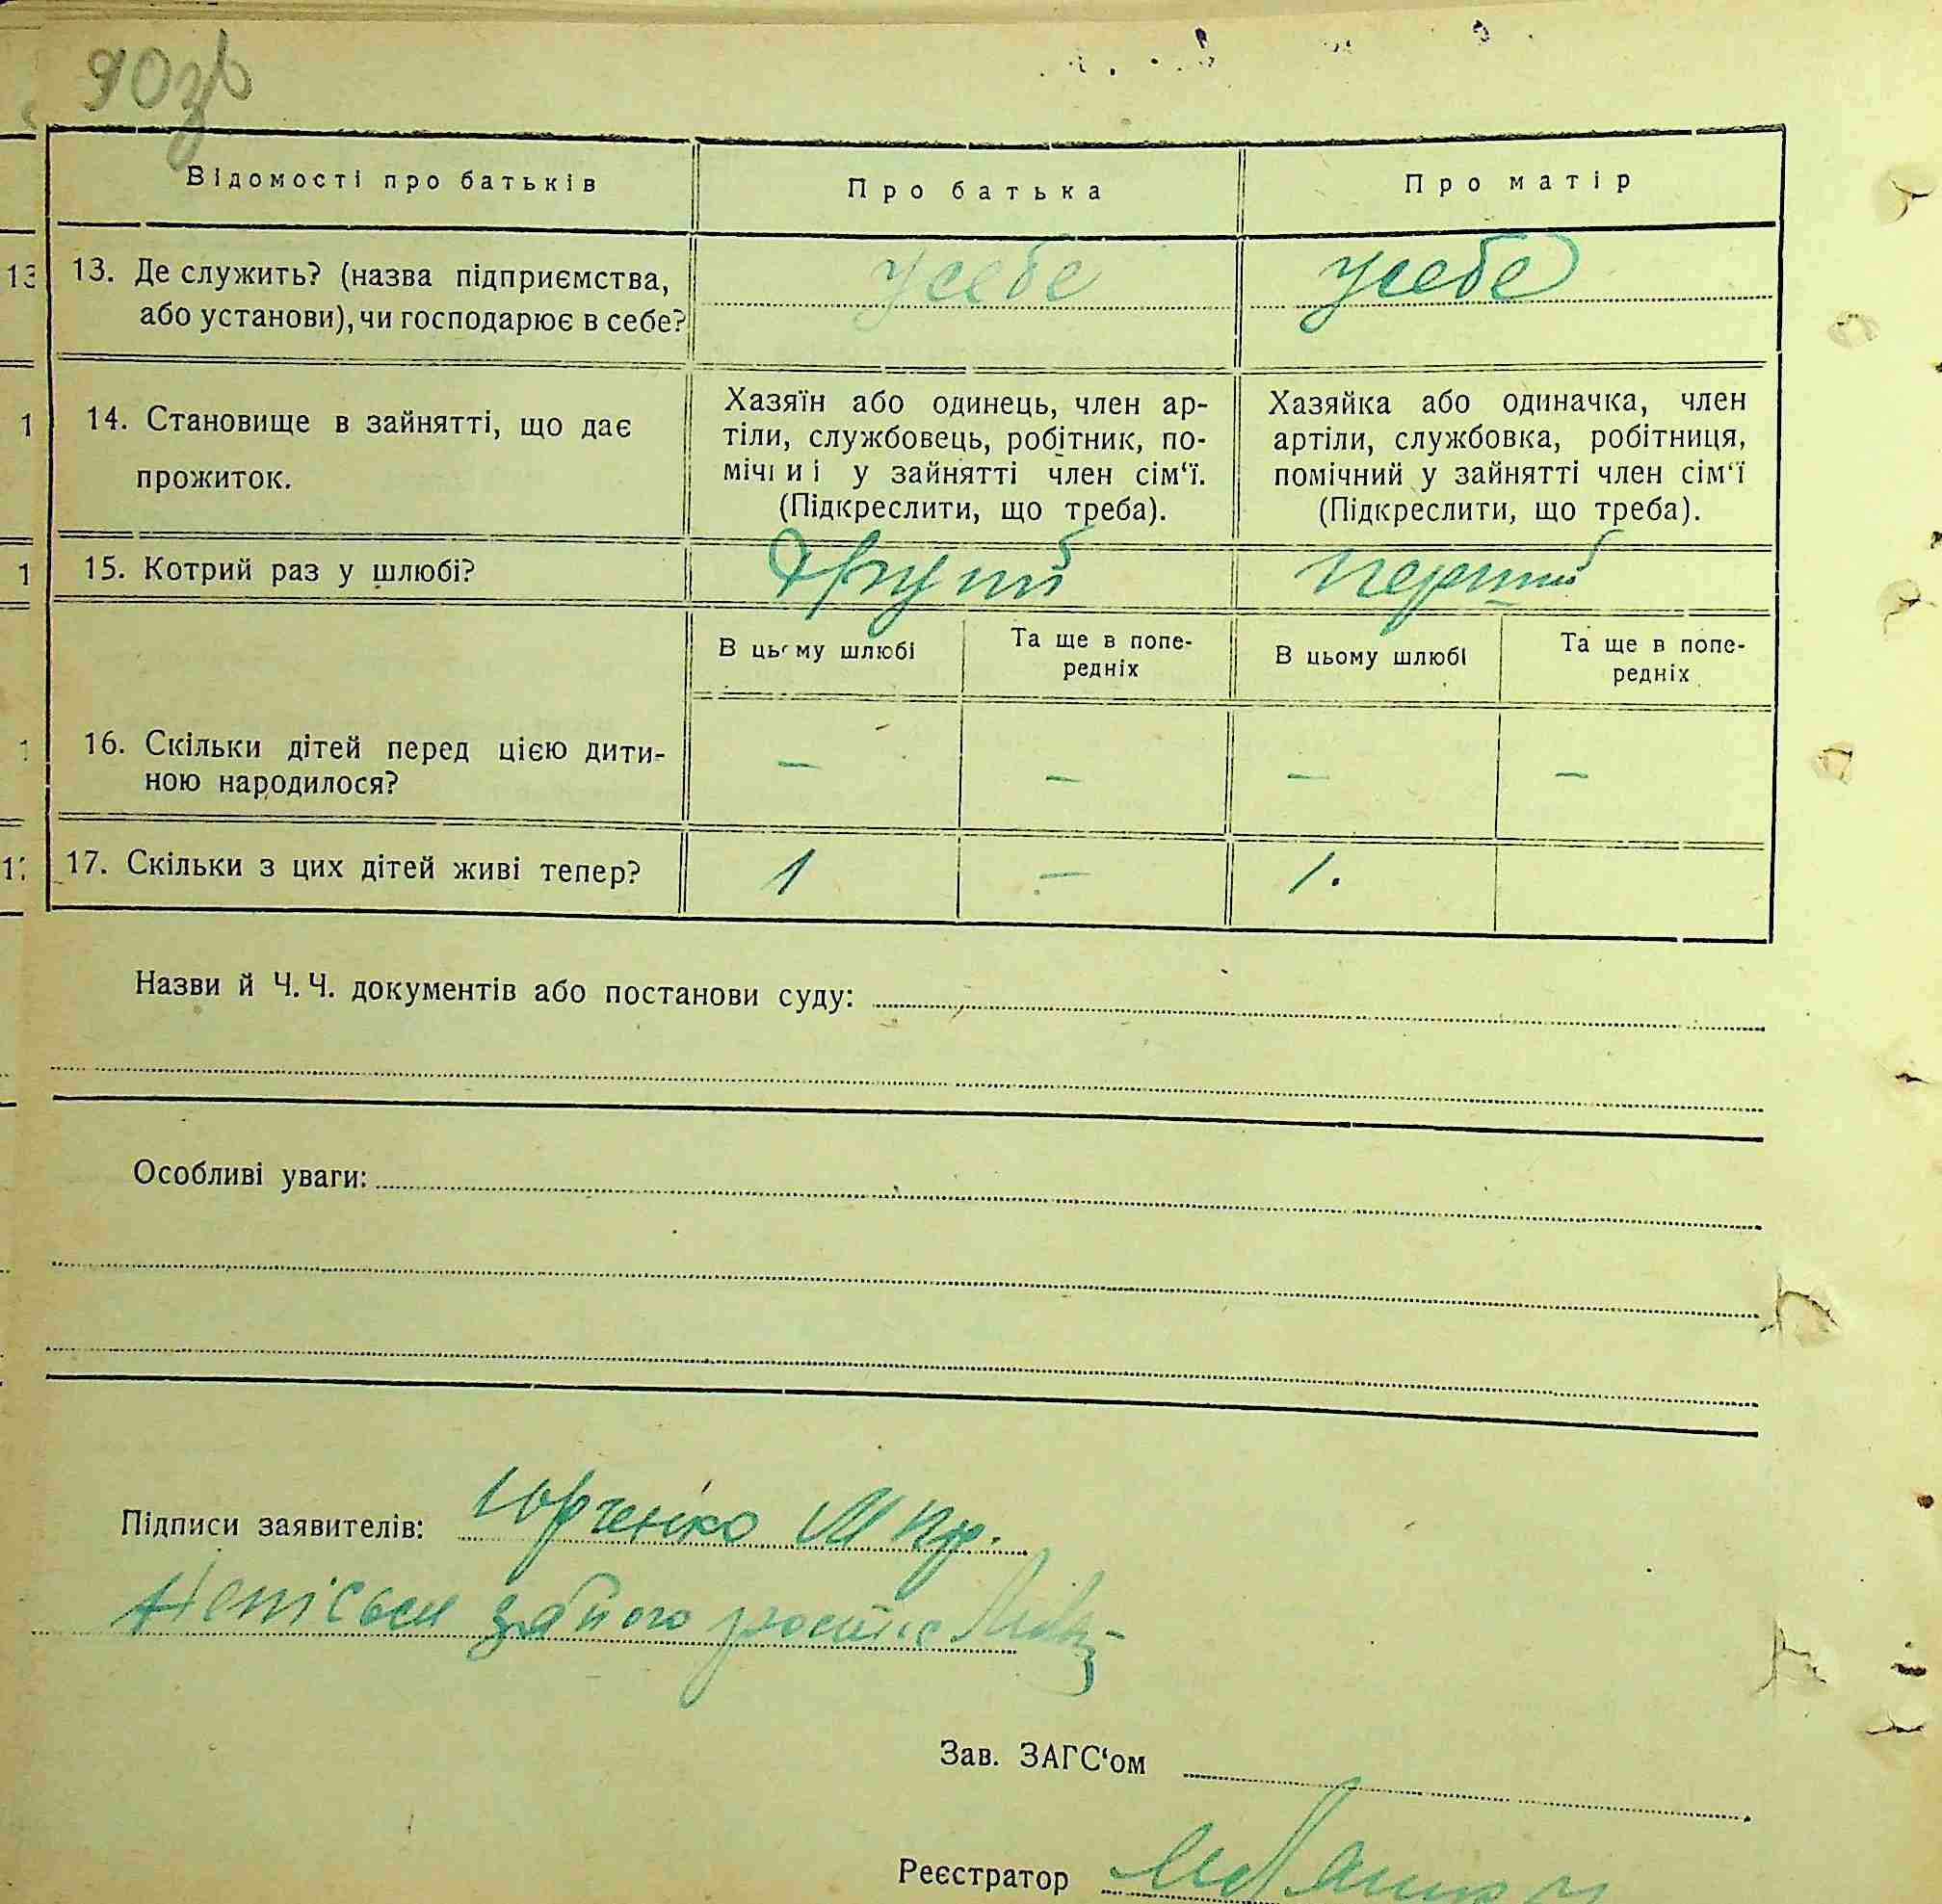 90зв
Відомості про батьків
Про батька
Про матір
13. Де служить? (назва підприємства,
або установи), чи господарює в себе?
у себе
у себе
14. Становище в зайнятті, що дає
прожиток.
Хазяїн або одинець, член ар-
тіли, службовець, робітник, по-
мічний у зайнятті член сім‘ї.
(Підкреслити, що треба).
Хазяйка або одиначка, член
артіли, службовка, робітниця,
помічний у зайнятті член сім‘ї
(Підкреслити, що треба).
15. Котрий раз у шлюбі?
Другий
перший
В цьому шлюбі
Та ще в попе-
редніх
В цьому шлюбі
Та ще в попе-
редніх
16. Скільки дітей перед цією дити-
ною народилося?
–
–
–
–
17. Скільки з цих дітей живі тепер?
1
–
1.
Назви й Ч. Ч. документів або постанови суду:
Особливі уваги:
Підписи заявителів: Юрченко М Пр.
Зав. ЗАГС‘ом
Реєстратор
13
1
1
1